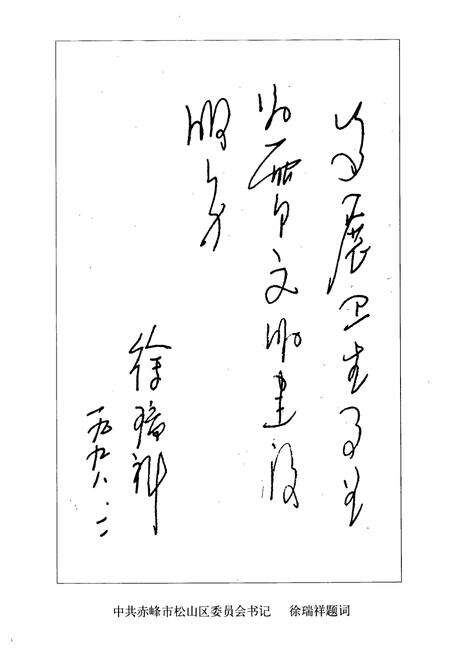 发展卫生事业
为两个文明建设
服务
徐瑞祥
一九九八.二
中共赤峰市松山区委员会书记 徐瑞祥题词